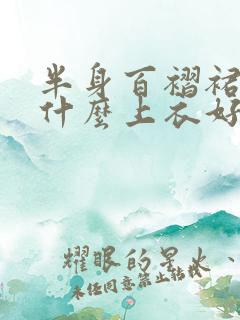 半身百褶裙
什麼上衣好
耀眼的星火、
未经同意禁止转载